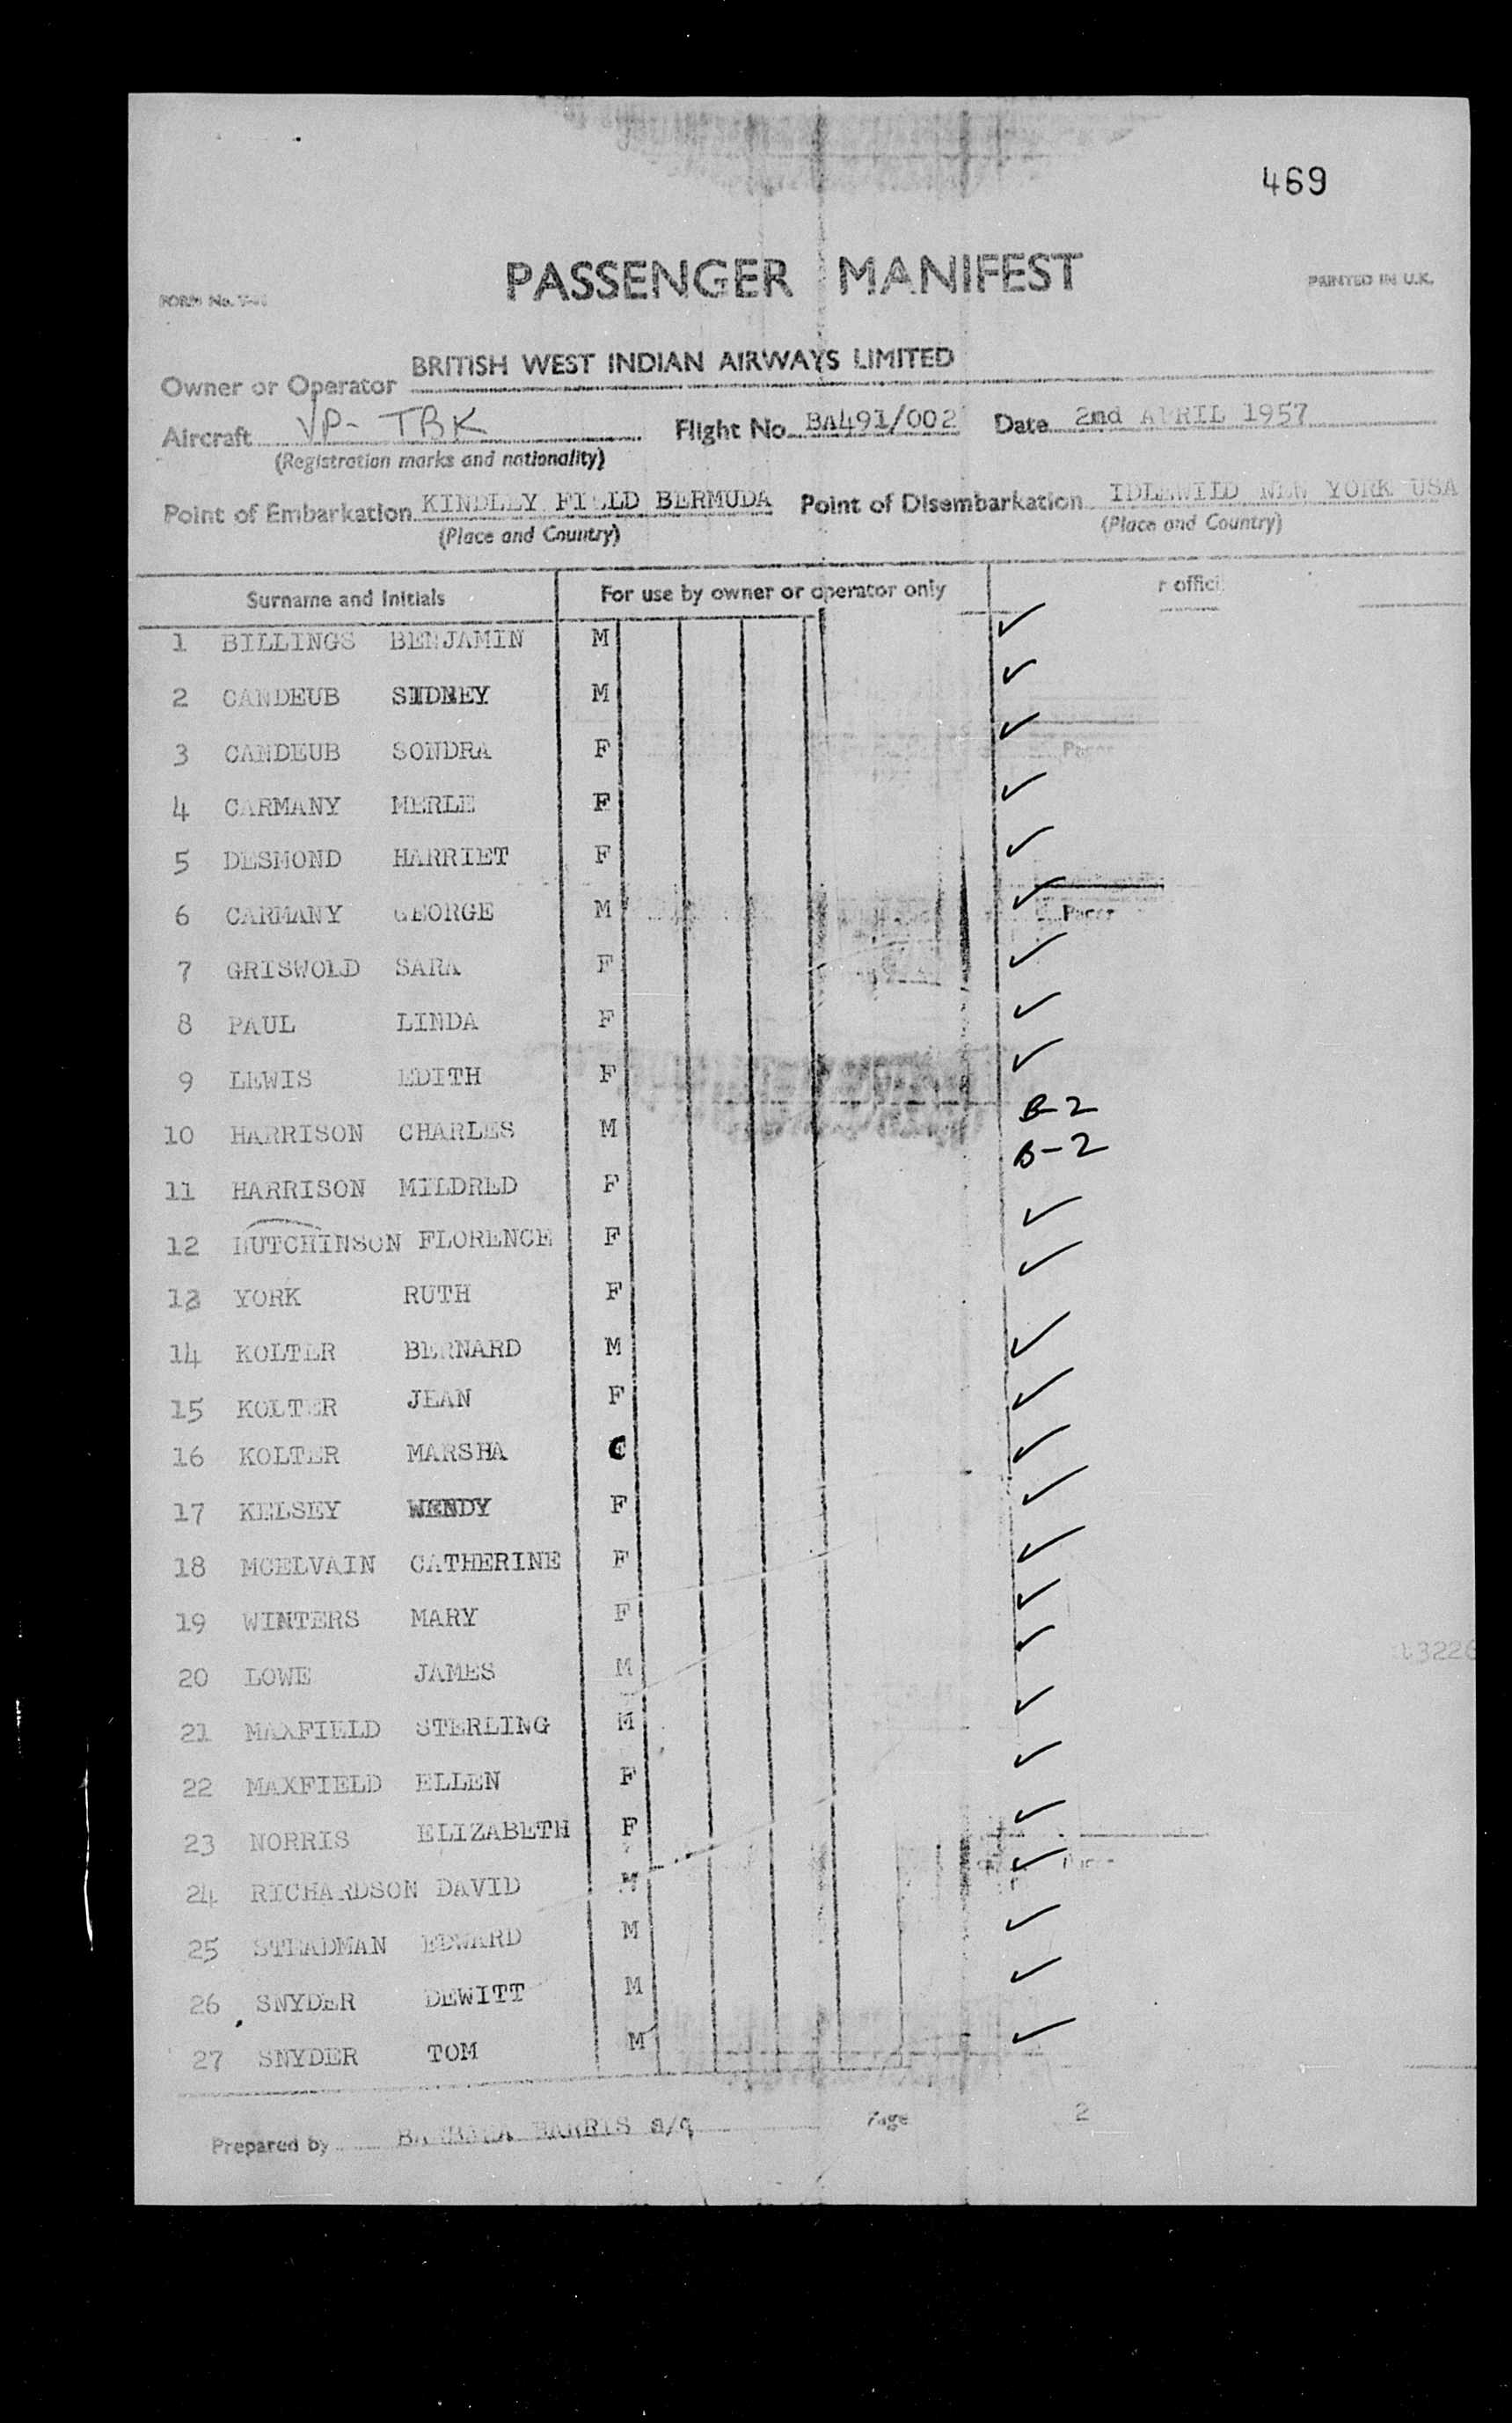 469
PASSENGER MANIFEST
FORM No. PRINTED IN U.K.
Owner or Operator BRITISH WEST INDIAN AIRWAYS LIMITED
Aircraft VP- TBK Flight No. BA491/002 Date 2nd APRIL 1957
(Registration marks and nationality)
Point of Embarkation KINDLEY FIELD BERMUDA Point of Disembarkation IDLEWILD NEW YORK USA
(Place and Country) (Place and Country)
Surname and Initials For use by owner or operator only r offici
1 BILLINGS BENJAMIN M ✓
2 CANDEUB SIDNEY M ✓
3 CANDEUB SONDRA F ✓
4 CARMANY MERLE F ✓
5 DESMOND HARRIET F ✓
6 CARMANY GEORGE M ✓
7 GRISWOLD SARA F ✓
8 PAUL LINDA F ✓
9 LEWIS EDITH F ✓
10 HARRISON CHARLES M B-2
11 HARRISON MILDRED F B-2
12 HUTCHINSON FLORENCE F ✓
13 YORK RUTH F ✓
14 KOLTER BERNARD M ✓
15 KOLTER JEAN F ✓
16 KOLTER MARSHA C ✓
17 KELSEY WENDY F ✓
18 MCELVAIN CATHERINE F ✓
19 WINTERS MARY F ✓
20 LOWE JAMES M ✓
21 MAXFIELD STERLING M ✓
22 MAXFIELD ELLEN F ✓
23 NORRIS ELIZABETH F ✓
24 RICHARDSON DAVID M ✓
25 STEADMAN EDWARD M ✓
26 SNYDER DEWITT M ✓
27 SNYDER TOM M ✓
Prepared by BARBARA HARRIS a/q Page 2